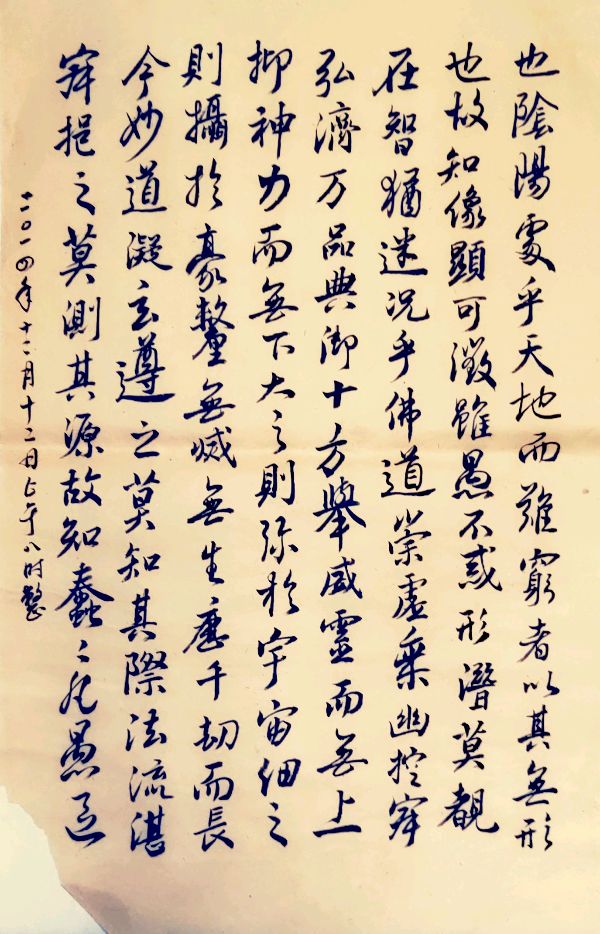 也陰陽處乎天地而難窮者以其無形
也故知像顯可徵雖愚不惑形潛莫覩
在智猶迷況乎佛道崇虛乘幽控寂
弘濟万品典御十方舉威靈而無上
抑神力而無下大之則彌於宇宙細之
則攝於豪釐無滅無生歷千劫而長
今妙道凝玄遵之莫知其際法流湛
寂挹之莫測其源故知蠢々凡愚區
二〇一四年十二月十二日上午八时整